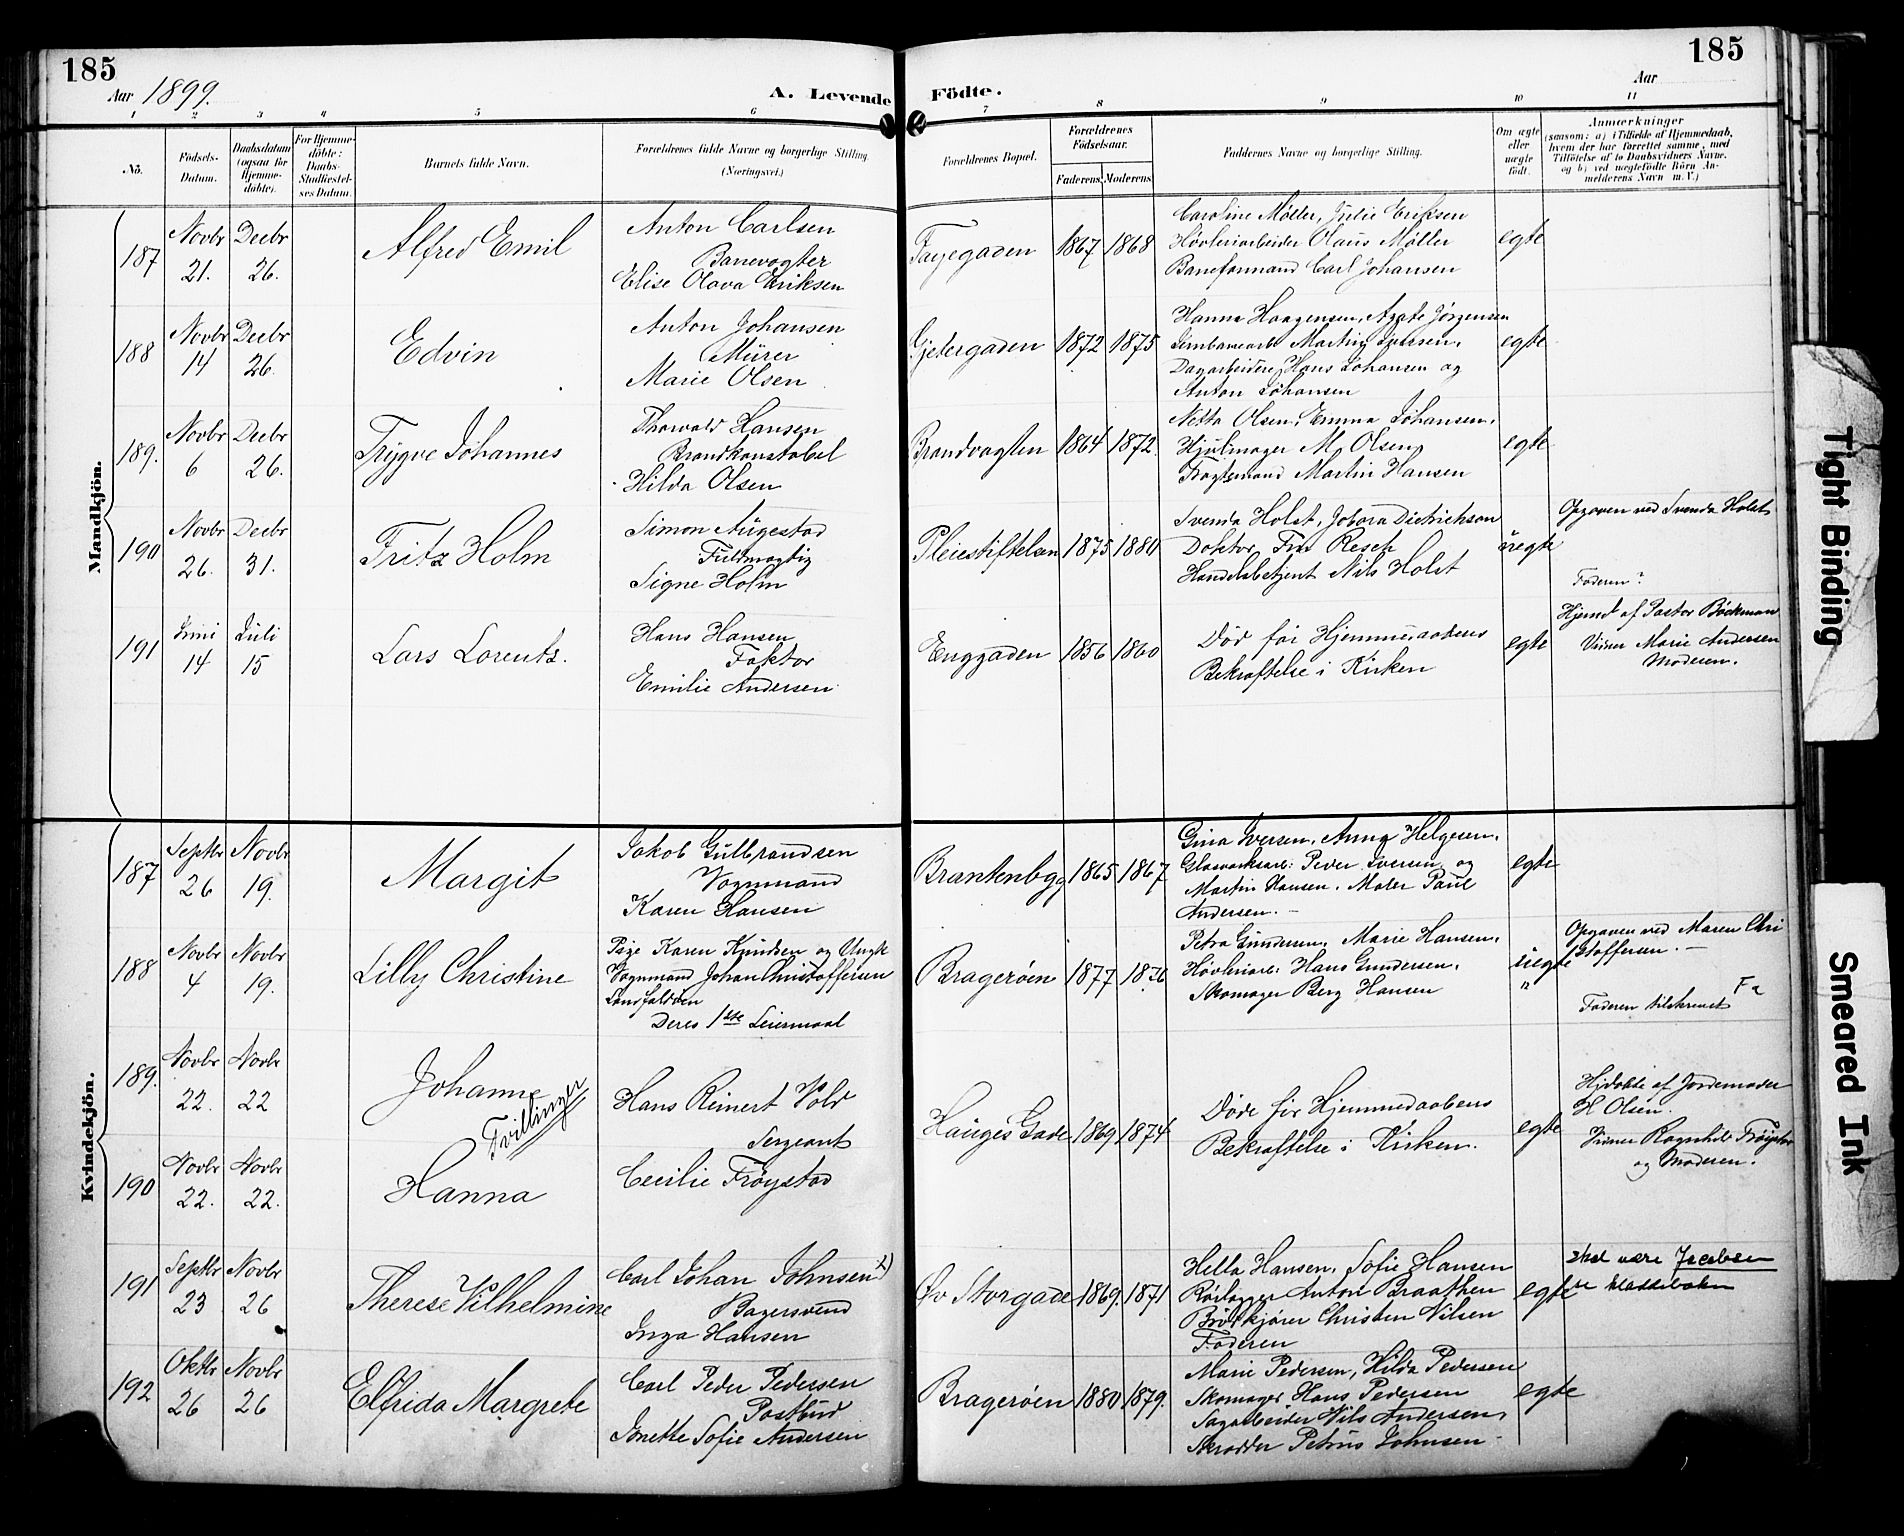 185
Aar 1899.
A. Levende
Födte.
185
Aar
1 2 3 4 5 6 7 8 9 10 11
No.
Födsels-
Datum.
Daabsdatum
(ogsaa for
Hjemme-
döbte).
For Hjemme-
döbte:
Daabs-
Stadfæstel-
ses Datum.
Barnets fulde Navn.
Forældrenes fulde Navne og borgerlige Stilling.
(Næringsvei.)
Forældrenes Bopæl.
Forældrenes
Födselsaar.
Faderens. Moderens.
Faddernes Navne og borgerlige Stilling.
Om ægte
eller
uægte
födt.
Anmærkninger
(saasom: a) i Tilfælde af Hjemmedaab,
hvem der har forrettet samme, med
Tilföielse af to Daabsvidners Navne,
og b) ved uægtefödte Börn An-
melderens Navn m. V.)
Mandkjön.
187
Novbr 21.
Decbr 26.
Alfred Emil
Anton Carlsen
Banevogter
Elise Olava Eriksen
Fayegaden
1867 1868
Caroline Møller, Julie Eriksen
Høvleriarbeider Olaus Møller
Baneformand Carl Johansen
egte
188
Novbr 14
Decbr 26.
Edvin
Anton Johansen
Murer
Marie Olsen
Gjetergaden
1872 1875
Hanna Haagensen, Agate Jørgensen
Martin Iversen,
Dagarbeidere Hans Johansen og
Anton Johansen
egte
189.
Novbr 6
Decbr 26.
Trygve Johannes
Thorvald Hansen
Brandkonstabel
Hilda Olsen
Brandvagten
1864 1872.
Netta Olsen, Emma Johansen,
Hjulmager M. Olsen,
Fragtemand Martin Hansen
egte
190
Novbr 26.
Decbr 31.
Fritz Holm
Simon Augestad
Fuldmægtig
Signe Holm
Pleiestiftelsen
1875 1880
Svenda Holst, Dietrichson
Doktor Resch
Handelsbetjent Nils Holst
uegte
Opgaven ved Svenda Holst
Faderen?
191
Juni 14
Juli 15
Lars Lorentz.
Hans Hansen
Faktor
Emilie Andersen
Enggaden
1856 1860
Død før Hjemmedaabens
Bekræftelse i Kirken
egte
Hjemd af Pastor Bøckman
Vidner Marie Andersen
Moderen.
Kvindekjön.
187
Septbr 26
Novbr 19.
Margit
Jakob Gulbrandsen
Vognmand
Karen Hansen
Brantenbgg
1865 1867
Gina Iversen, Anna Helgesen,
Glasværksarb: Peder Iversen og
Martin Hansen. Maler Paul
Andersen. –
egte
188
Novbr 4
Novbr 19.
Lilly Christine
Pige Karen Knudsen og Ungk
Vognmand Johan Christoffersen
Landfaldøen
Deres 1ste Leiermaal
Bragerøen
1877 1876
Petra Gundersen, Marie Hansen,
Høvleriarb: Hans Gundersen,
Skomager Berg Hansen
uegte
"
Opgaven ved Maren Chri
stoffersen. –
Faderen tilskrevet Fa
189.
Novbr 22.
Novbr 22
Johanne
Tvillinger
Hans Reinert Vold
Sergeant
Cecilie Frøystad
Hauges Gade
1869. 1874
Døde før Hjemmedaabens
Bekræftelse i Kirken.
egte
Hjdøbte af Jordemoder
H Olsen.
Vidner Ragnhild Frøystad
og Moderen.
190
Novbr 22.
Novbr 22.
Hanna
191
Septbr 23
Novbr 26
Therese Vilhelmine
Carl Johan Johnsen x)
Bagersvend
Inga Hansen
Øv Storgade
1869. 1871
Hella Hansen, Sofie Hansen
Rørlægger Anton Braathen
Brødkjører Christen Nilsen
Faderen
egte
skal være Jacobsen
se klokkeboken
192
Oktbr 26
Novbr 26
Elfrida Margrete
Carl Peder Pedersen
Postbud
Josette Sofie Andersen
Bragerøen
1880 1879.
Marie Pedersen, Hilda Pedersen
Skomager Hans Pedersen
Sagarbeider Nils Andersen,
Skrædder Petrus Johnsen –
egte
Tight Binding
Smeared Ink